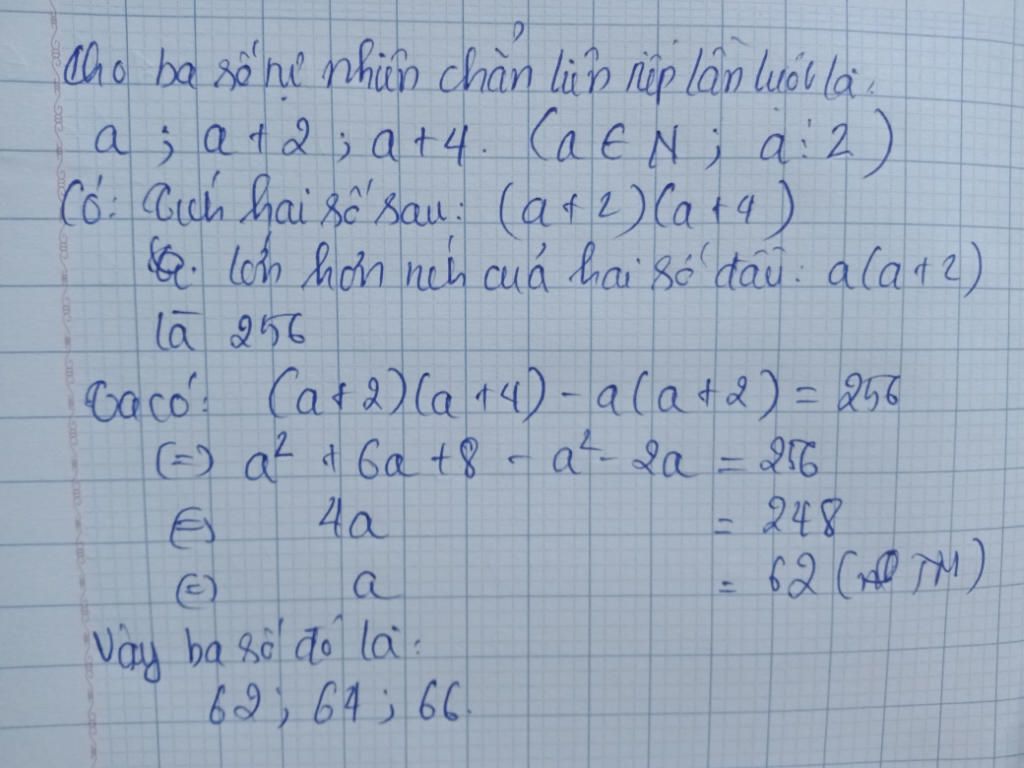 Cho ba số tự nhiên chẵn liên tiếp lần lượt là:
a ; a + 2 ; a + 4. (a ∈ N ; a ⋮ 2)
Có: Tích hai số sau: (a + 2)(a + 4)
lớn hơn tích của hai số đầu: a(a + 2)
là 256
Ta có: (a + 2)(a + 4) - a(a + 2) = 256
(=) a² + 6a + 8 - a² - 2a = 256
(=) 4a = 248
(=) a = 62 (TM)
Vậy ba số đó là:
62 ; 64 ; 66.